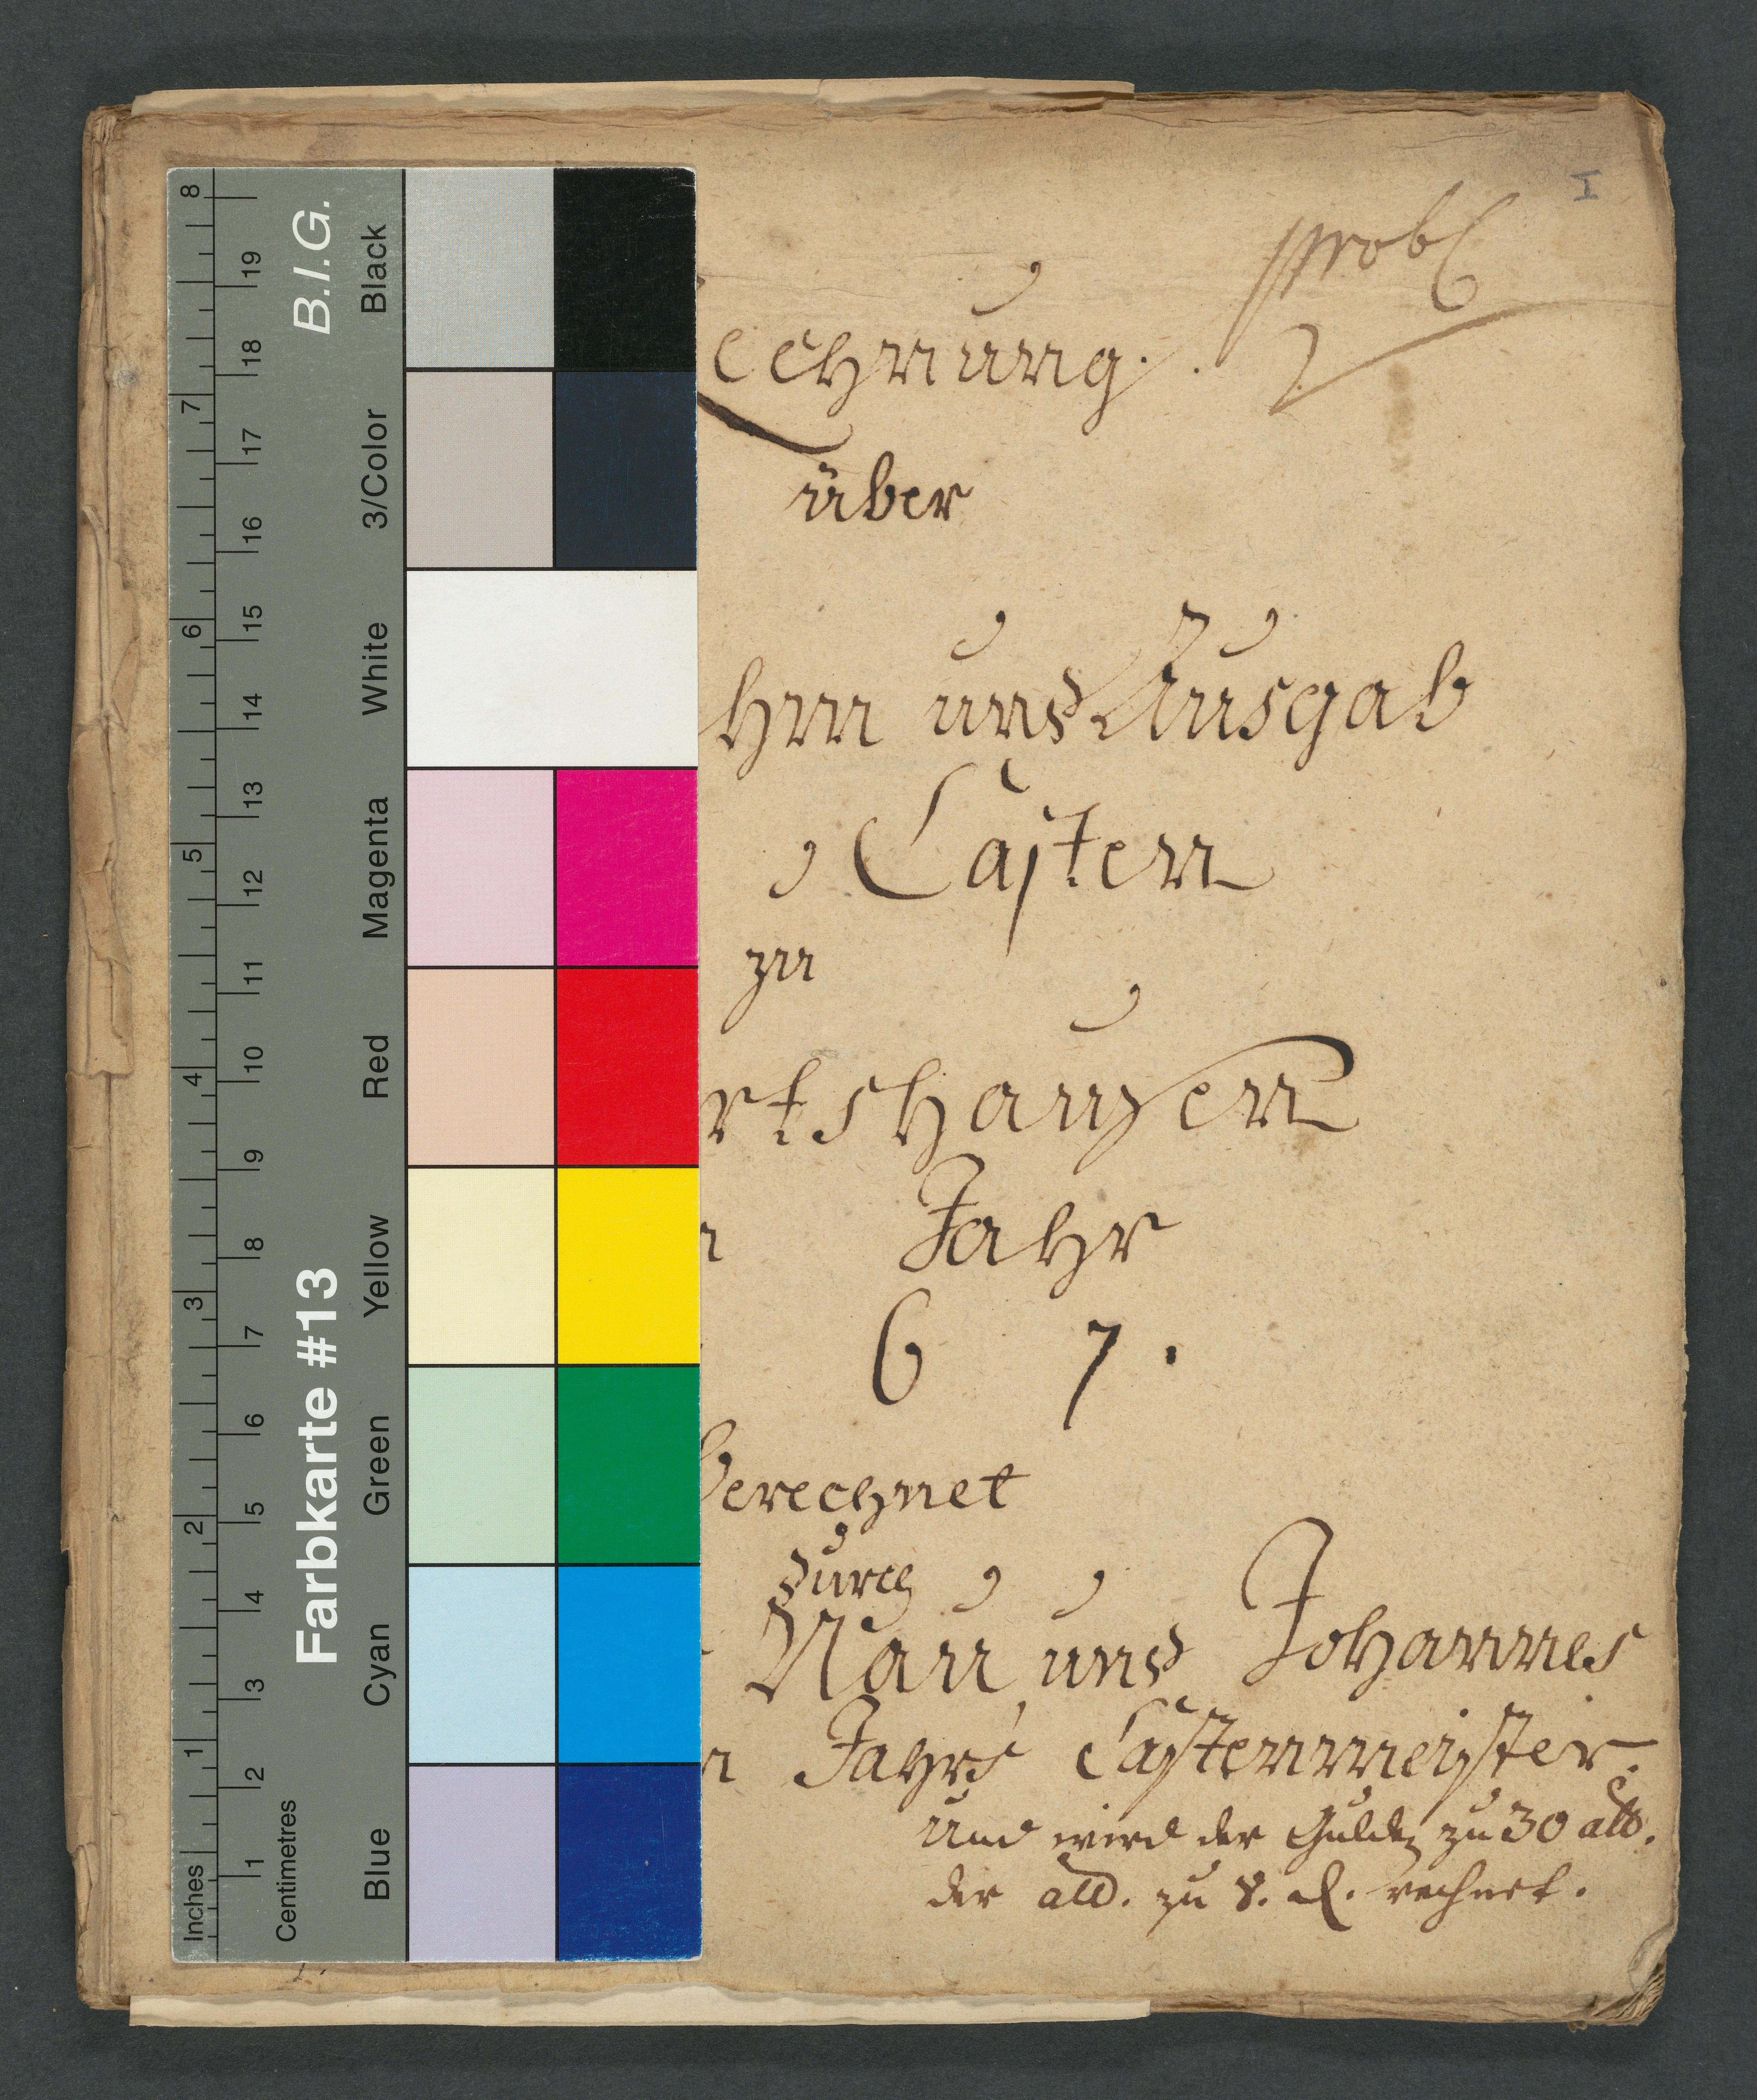 I
prob
echnung.
über
hm und Ausgab
Casten
zu
rtshausen
Jahr
6 7.
berechnet
durch
Nau und Johannes
n Jahrs Castenmeister.
Und wird der Gulden zu 30 alb.
der alb. zu 8. d. rechnet.
Inches
8
7
6
5
4
3
2
1
Centimetres
19
18
17
16
15
14
13
12
11
10
9
8
7
6
5
4
3
2
1
Farbkarte #13
B.I.G.
Blue
Cyan
Green
Yellow
Red
Magenta
White
3/Color
Black